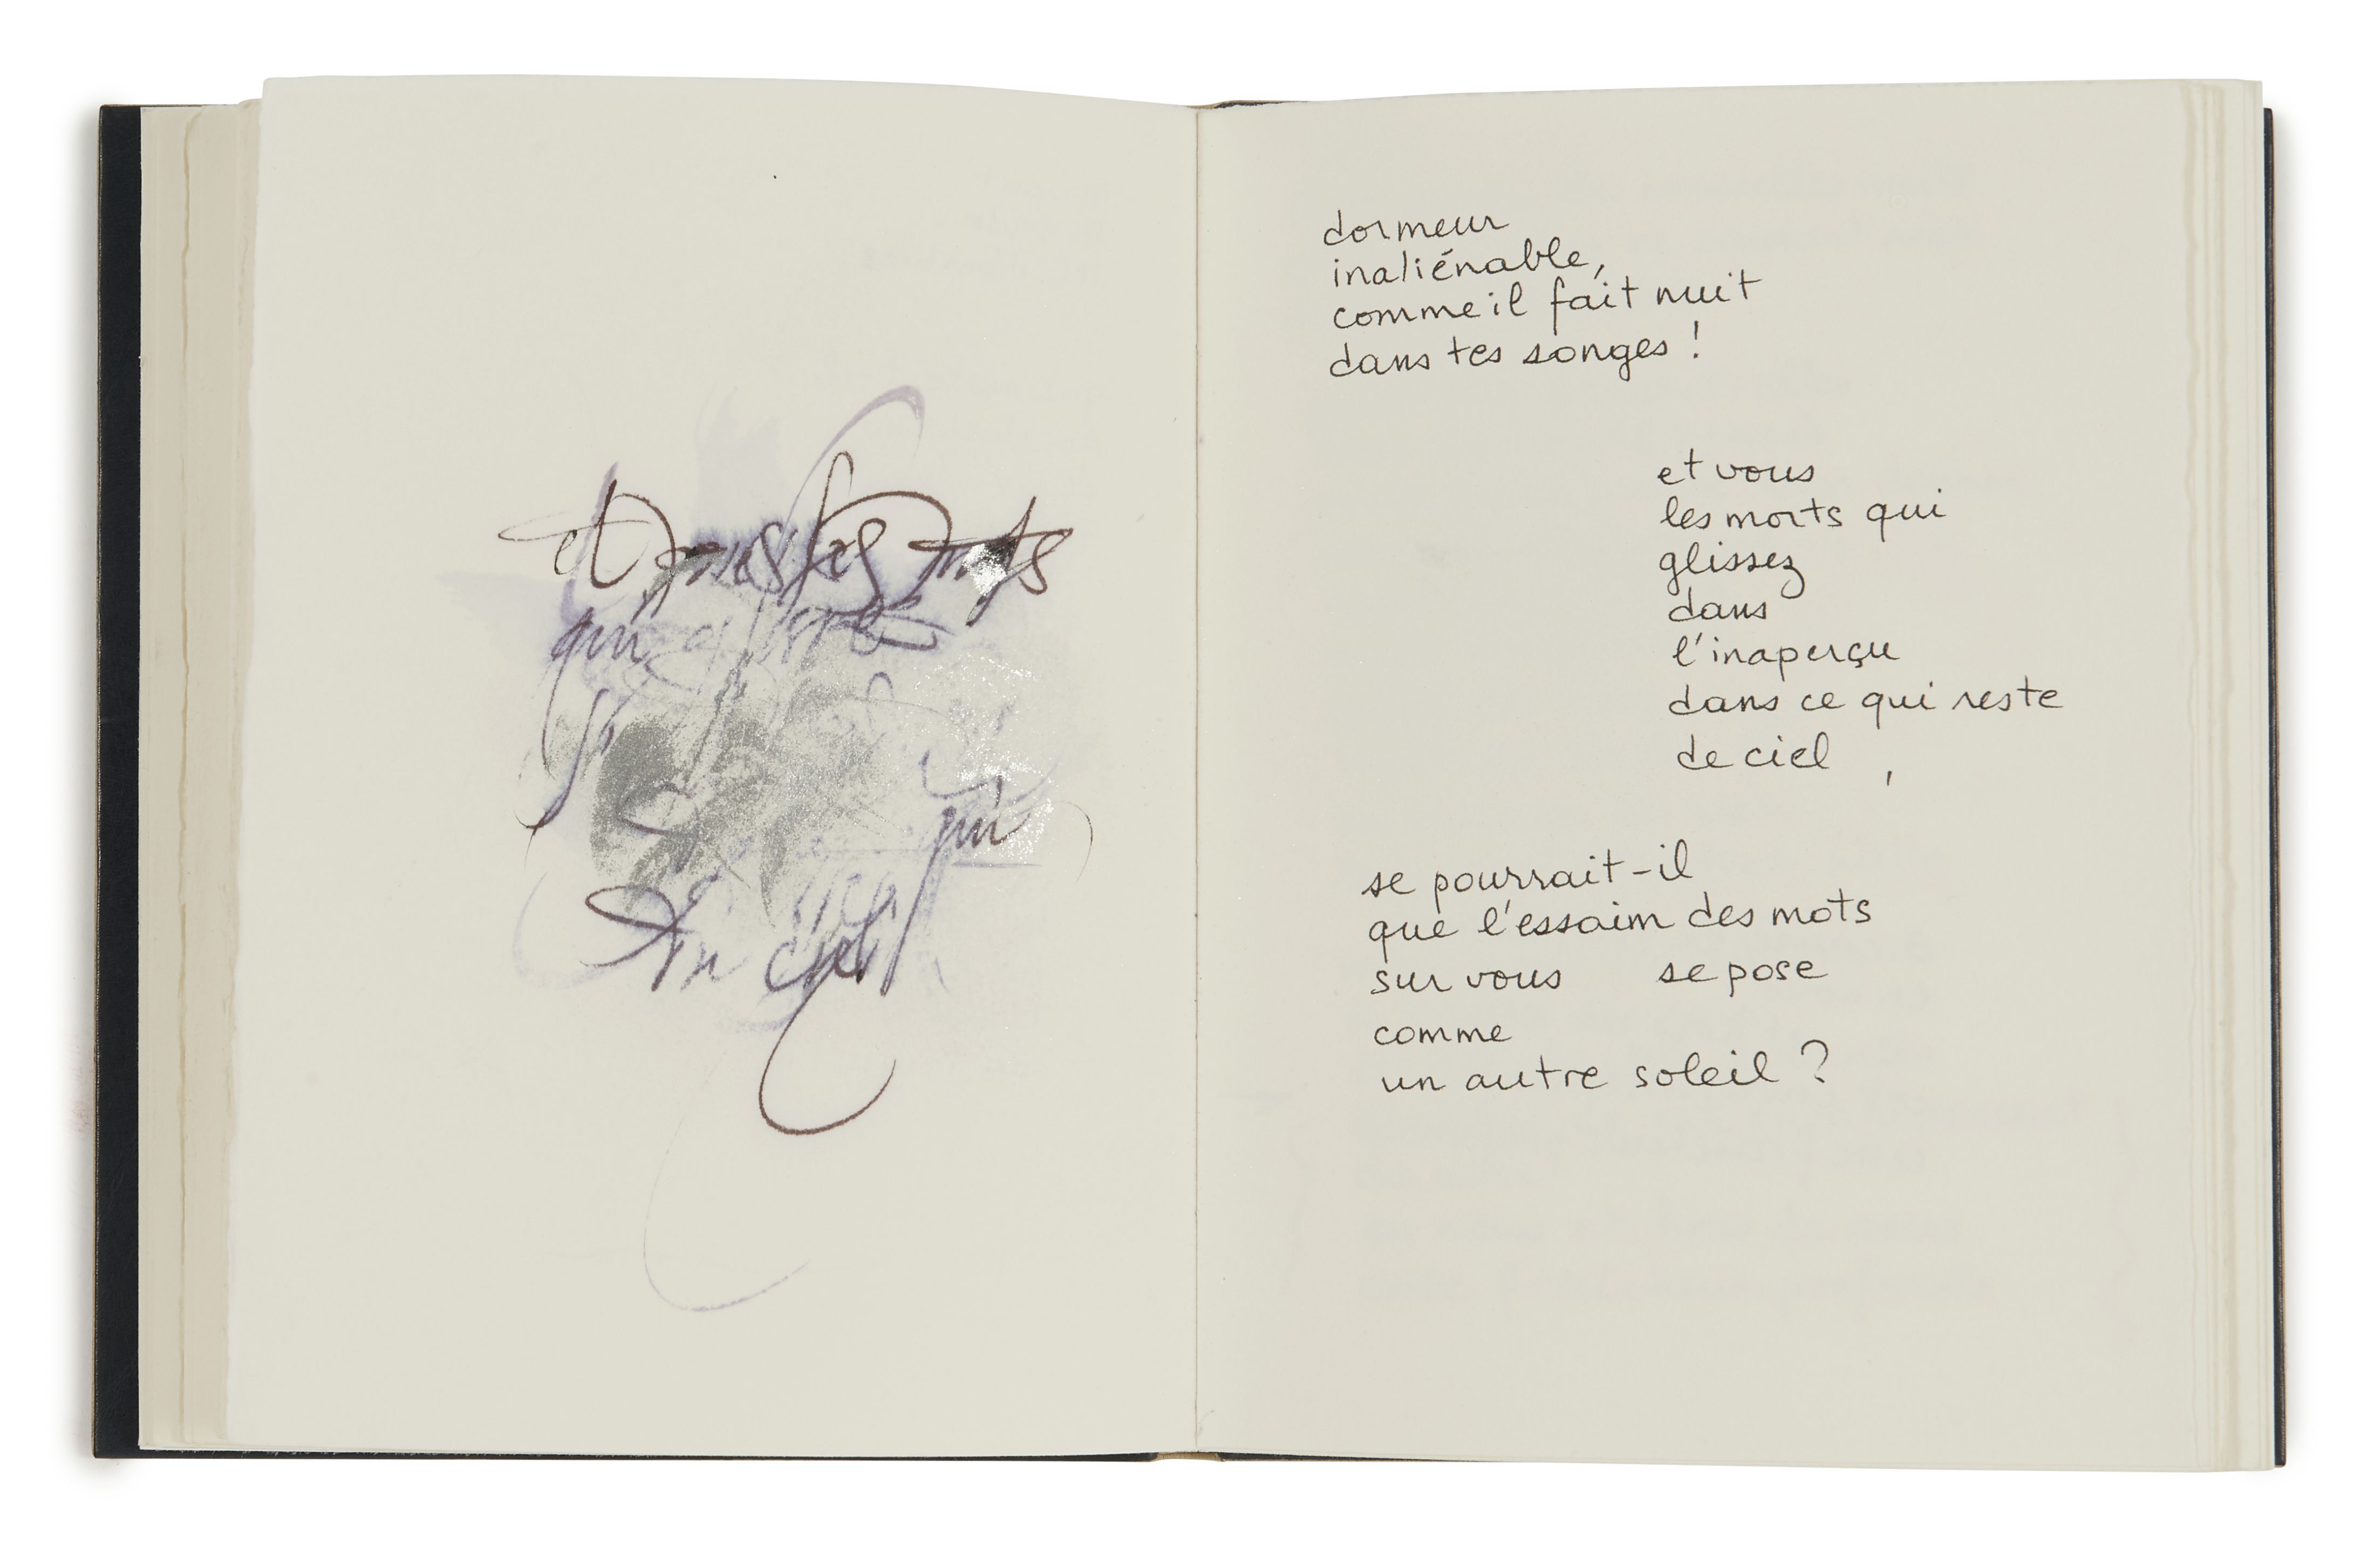 et vous les morts
qui
qui
du ciel
dormeur
inaliénable,
comme il fait nuit
dans tes songes !
et vous
les morts qui
glissez
dans
l'inaperçu
dans ce qui reste
de ciel ,
se pourrait-il
que l'essaim des mots
sur vous se pose
comme
un autre soleil ?